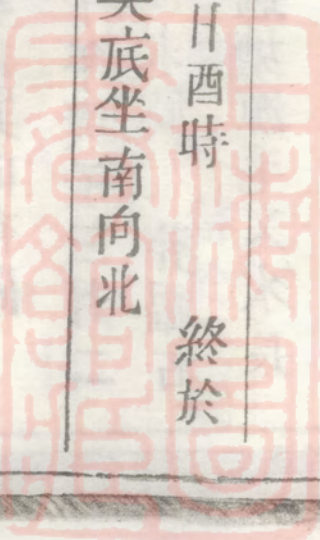 酉時 終於
底坐南向北